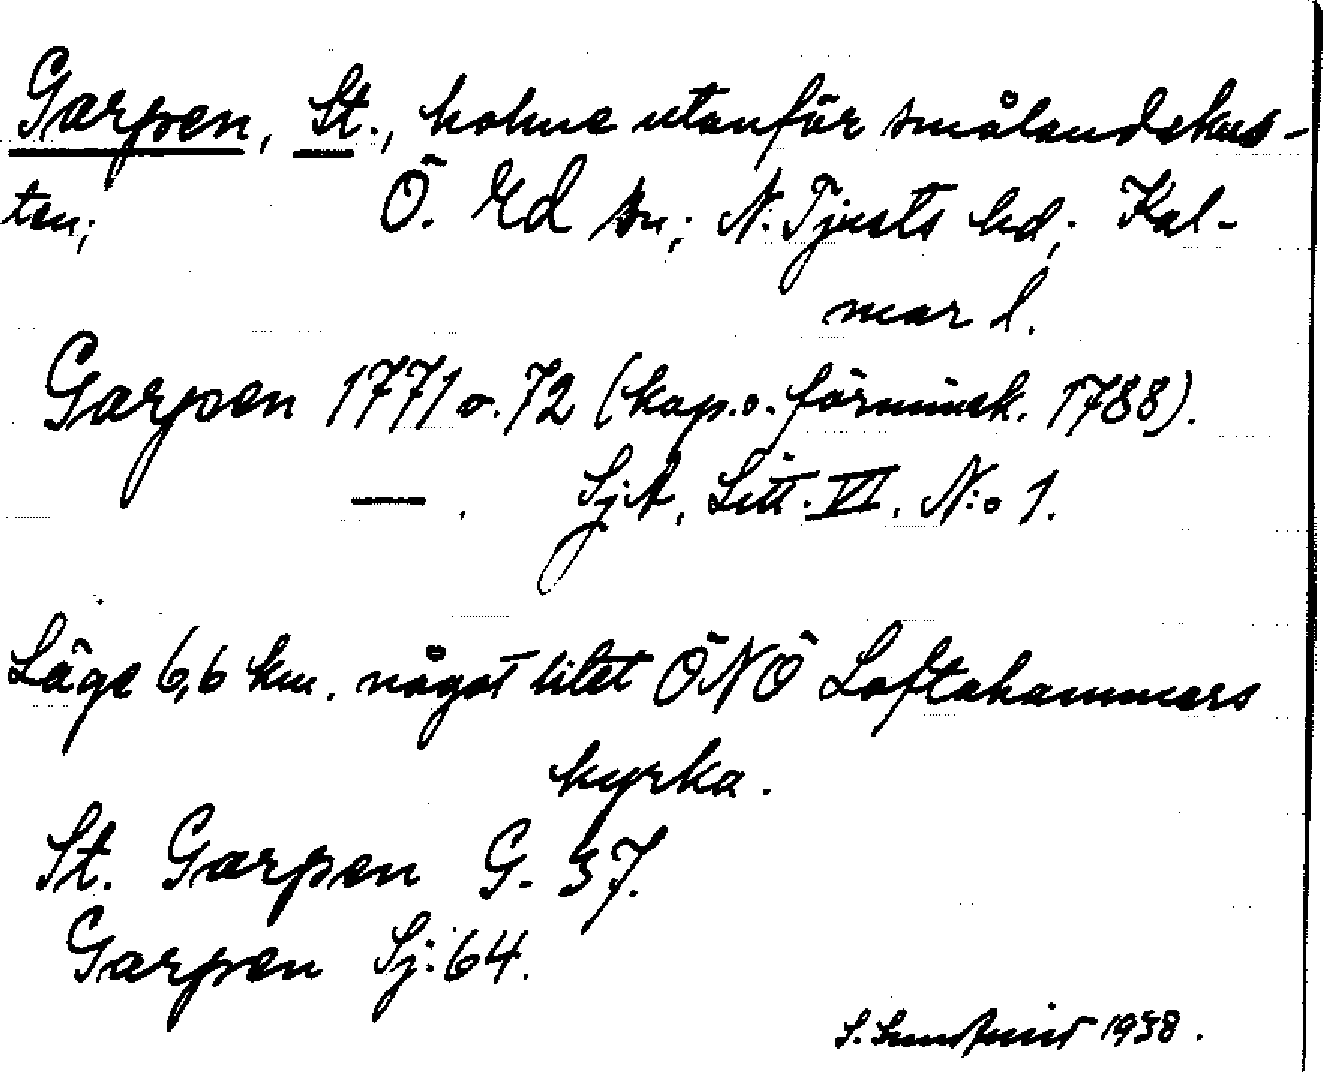 Garpen, St., holme utanför smålandskus-
ten; Ö. Ed sn; N. Tjusts hd; Kal-
mar l.
Garpen 1771 o. 72 (kop. o. förminsk. 1788).
— . SjA, Litt. VI. N:o 1.
Läge 6,6 km. något litet ÖNÖ Loftahammars
kyrka.
St. Garpen G. 37.
Garpen Sj: 64.
S. 1938.